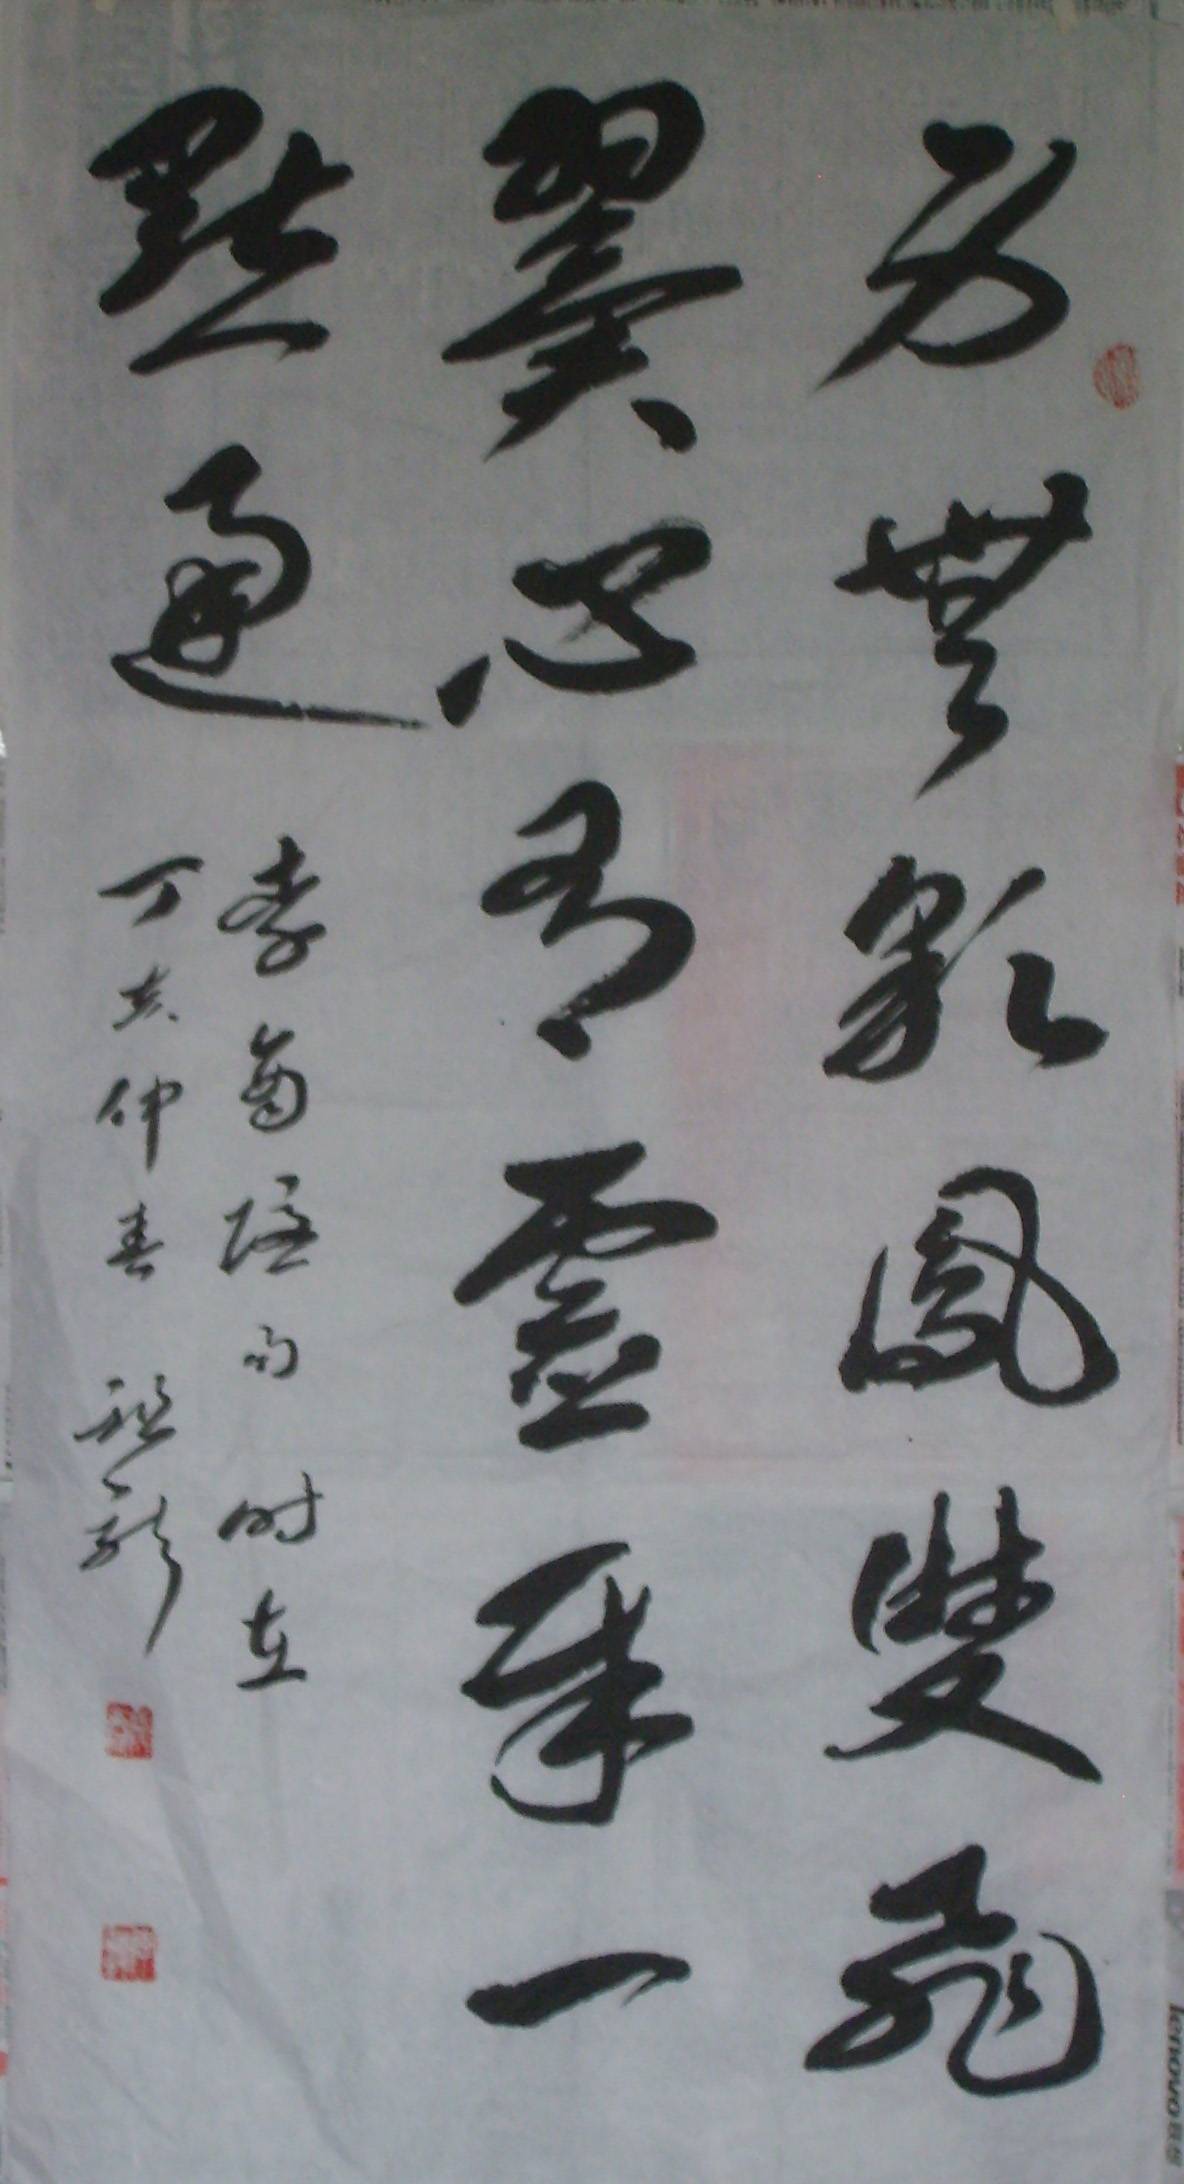 身無彩鳳雙飛
翼心有靈犀一
點通
李商隱句时在
丁亥仲春 祖龍
lenovo